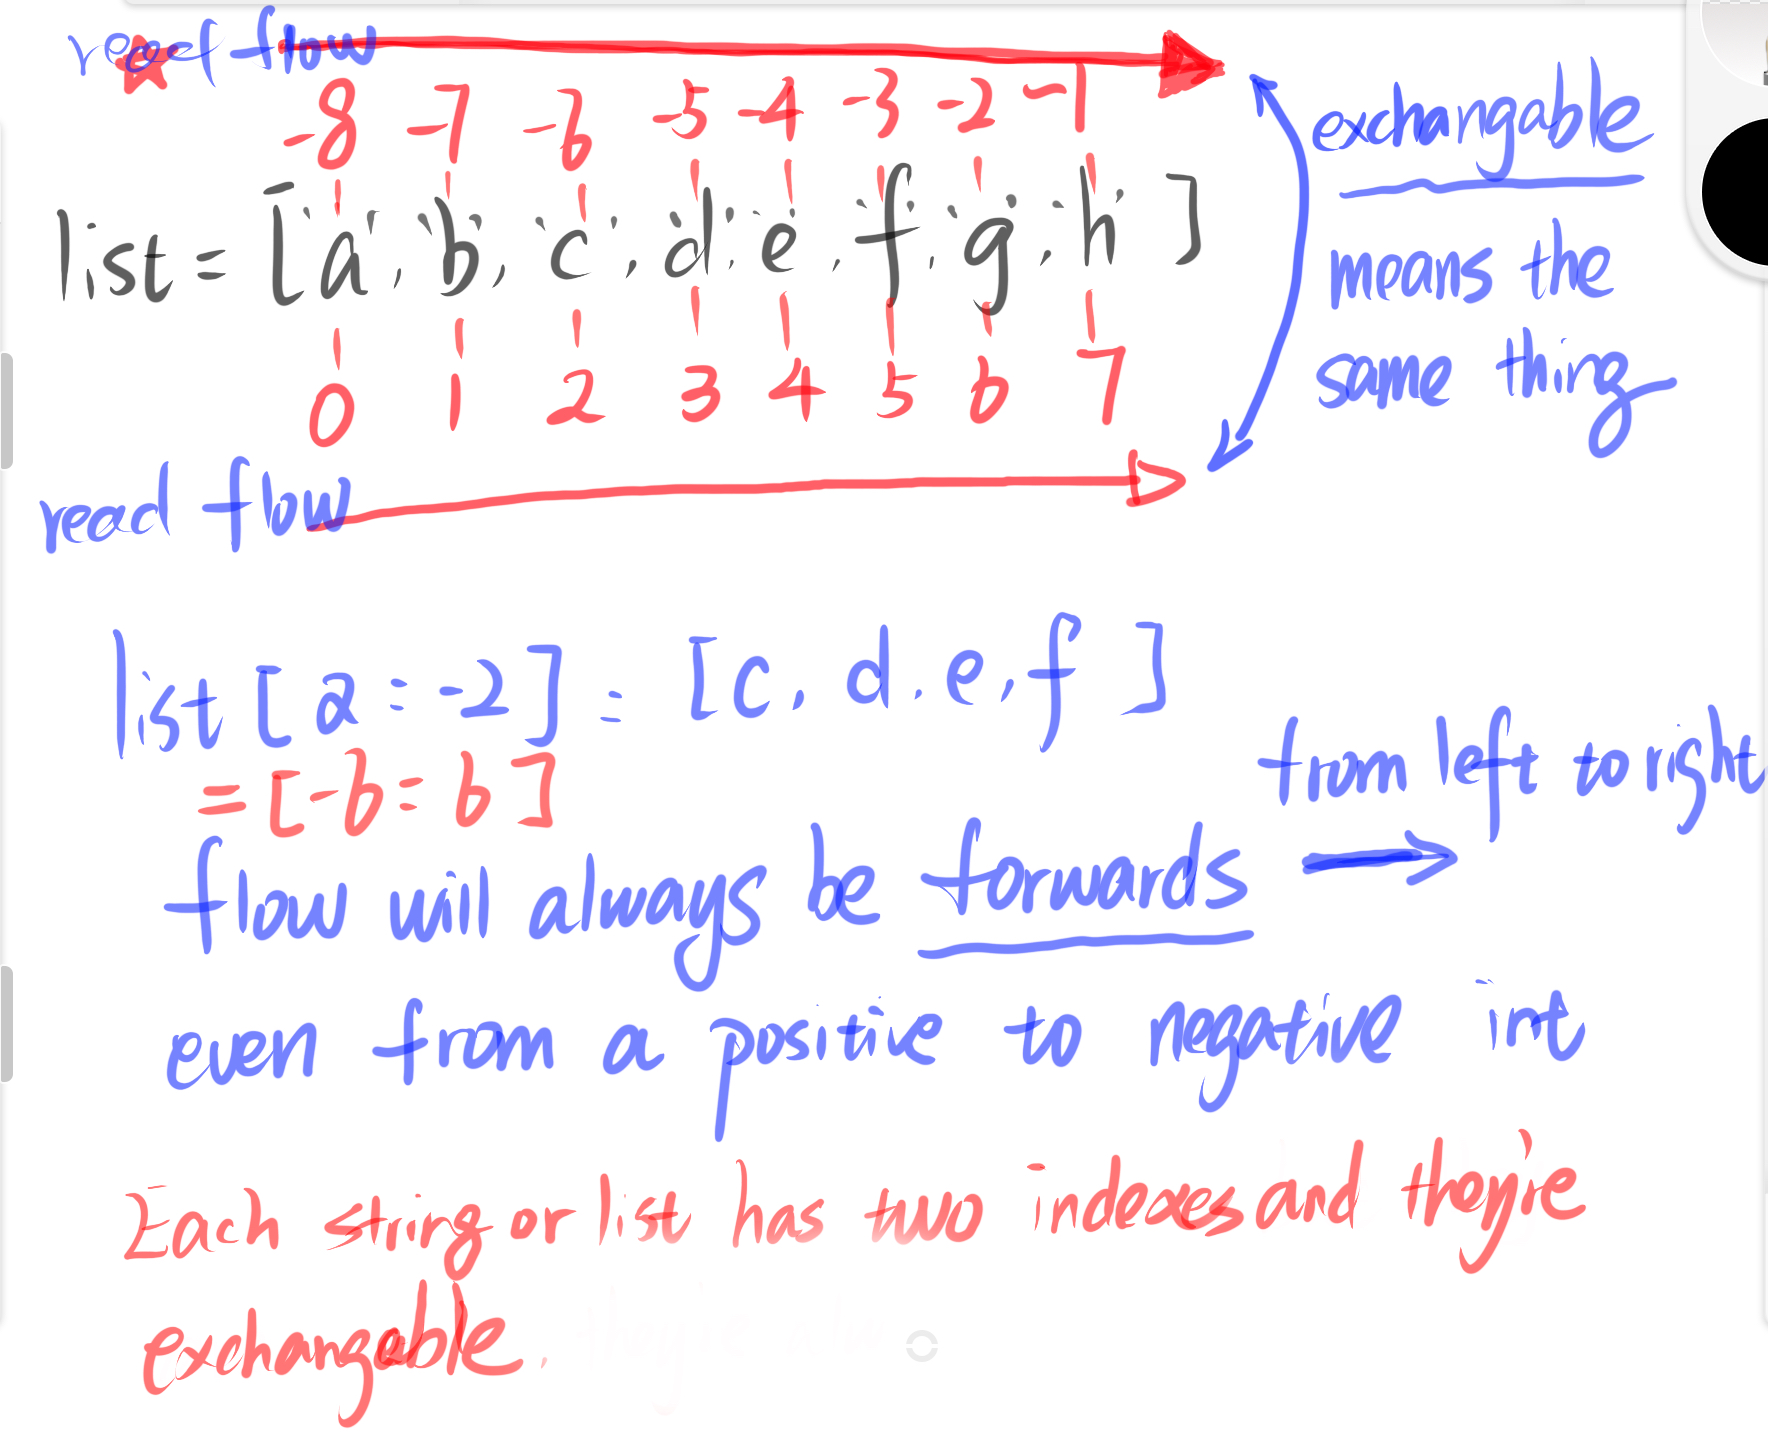 read flow
-8 -7 -6 -5 -4 -3 -2 -1
list = ['a', 'b', 'c', 'd', 'e', 'f', 'g', 'h']
0 1 2 3 4 5 6 7
read flow
exchangable
means the
same thing
list [2 : -2] = [c, d, e, f]
= [-6 : 6]
from left to right
flow will always be forwards
even from a positive to negative int
Each string or list has two indexes and they're
exchangable.